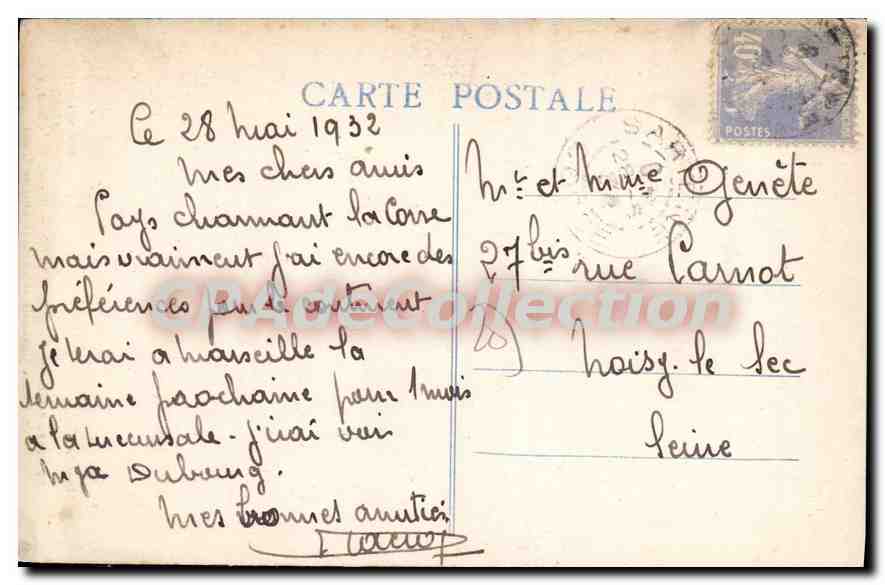 CARTE POSTALE
Le 28 Mai 1932
Mes chers amis
Pays charmant la Corse
mais vraiment j'ai encore des
préférences pour le continent
je serai a Marseille la
semaine prochaine pour 1 mois
a la succursale - j'irai voir
Dubourg.
Mes bonnes amitiés
Mr et Mme Genête
27 bis rue Carnot
Noisy-le-Sec
Seine
40
POSTES
SAR
CPAdeCollection